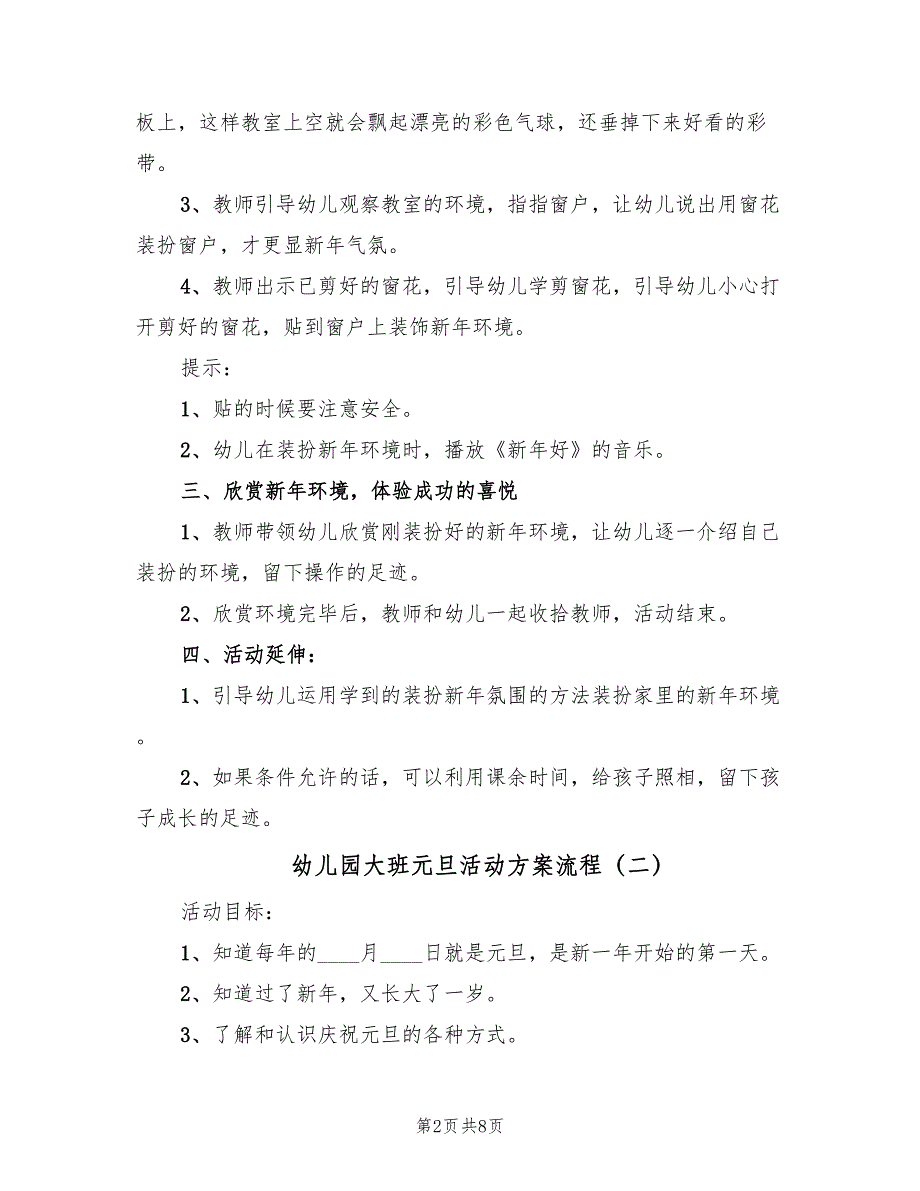 板上，这样教室上空就会飘起漂亮的彩色气球，还垂掉下来好看的彩
带。
3、教师引导幼儿观察教室的环境，指指窗户，让幼儿说出用窗花
装扮窗户，才更显新年气氛。
4、教师出示已剪好的窗花，引导幼儿学剪窗花，引导幼儿小心打
开剪好的窗花，贴到窗户上装饰新年环境。
提示：
1、贴的时候要注意安全。
2、幼儿在装扮新年环境时，播放《新年好》的音乐。
三、欣赏新年环境，体验成功的喜悦
1、教师带领幼儿欣赏刚装扮好的新年环境，让幼儿逐一介绍自己
装扮的环境，留下操作的足迹。
2、欣赏环境完毕后，教师和幼儿一起收拾教师，活动结束。
四、活动延伸：
1、引导幼儿运用学到的装扮新年氛围的方法装扮家里的新年环境
。
2、如果条件允许的话，可以利用课余时间，给孩子照相，留下孩
子成长的足迹。
幼儿园大班元旦活动方案流程（二）
活动目标：
1、知道每年的____月____日就是元旦，是新一年开始的第一天。
2、知道过了新年，又长大了一岁。
3、了解和认识庆祝元旦的各种方式。
第2页 共8页